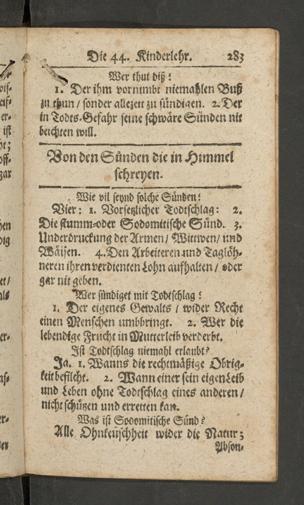 Die 44. Kinderlehr. 283
Wer thut diß?
1. Der ihm vornimbt niemahlen Buß
zu thun / sonder allezeit zu sündigen. 2. Der
in Todts-Gefahr seine schwäre Sünden nit
beichten will.
Von den Sünden die in Himmel
schreyen.
Wie vil seynd solche Sünden?
Vier: 1. Vorsetzlicher Todtschlag: 2.
Die stumm-oder Sodomitische Sünd. 3.
Underdruckung der Armen / Wittwen / und
Wäisen. 4. Den Arbeiteren und Taglöh-
neren ihren verdienten Lohn aufhalten / oder
gar nit geben.
Wer sündiget mit Todtschlag?
1. Der eigenes Gewalts / wider Recht
einen Menschen umbbringt. 2. Wer die
lebendige Frucht in Mutterleib verderbt.
Ist Todtschlag niemahl erlaubt?
Ja. 1. Wanns die rechtmäßige Obrig-
keit befilcht. 2. Wann einer sein eigen Leib
und Leben ohne Todtschlag eines anderen /
nicht schützen und erretten kan.
Was ist Sodomitische Sünd?
Alle Ohnkeuschheit wider die Natur;
Abson-